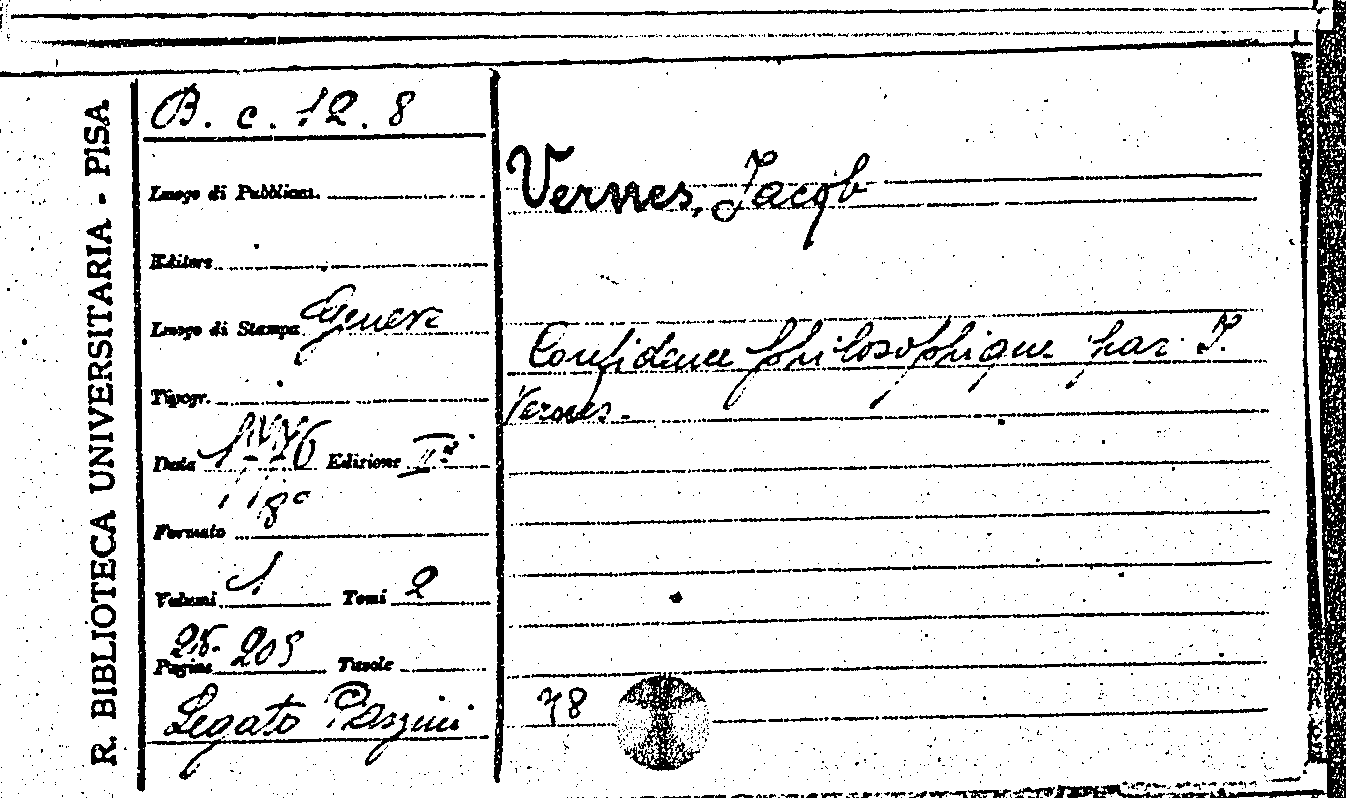 R. BIBLIOTECA UNIVERSITARIA - PISA
B. c. 12. 8
Luogo di Pubblicaz.
Editore
Luogo di Stampa Geneve
Tipogr.
Data 1776 Edizione IIª
Formato 8°
Volumi 1 Tomi 2
Pagine 205
Tavole
Legato
Vernes, Jacob
Confidence philosophique par J.
Vernes.
78